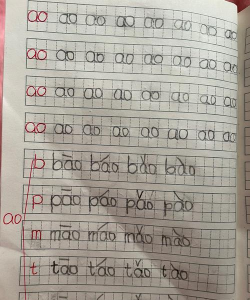 ao ao ao ao ao ao ao ao
ao ao ao ao ao ao ao ao
ao ao ao ao ao ao ao ao
ao ao ao ao ao ao ao ao
b bāo báo bǎo bào
p pāo páo pǎo pào
ao
m māo máo mǎo mào
t tāo táo tǎo tào